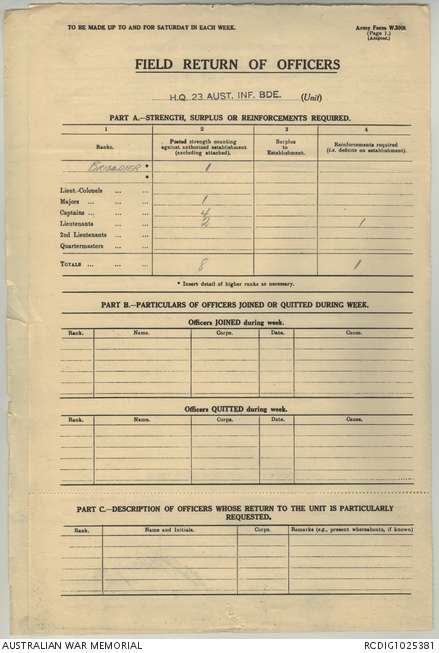 TO BE MADE UP TO AND FOR SATURDAY IN EACH WEEK.
Army Form W.3008.
(Page 1.)
(Adapted.)
FIELD RETURN OF OFFICERS
H.Q. 23 AUST. INF. BDE. (Unit)
PART A.—STRENGTH, SURPLUS OR REINFORCEMENTS REQUIRED.
1 2 3 4
Ranks. Posted strength counting against authorized establishment (excluding attached). Surplus to Establishment. Reinforcements required (i.e. deficits on establishment).
BRIGADIER * 1
*
Lieut.-Colonels ... ...
Majors ... ... ... 1
Captains ... ... ... 4
Lieutenants ... ... 2 1
2nd Lieutenants ... ...
Quartermasters ... ...
TOTALS ... ... ... 8 1
* Insert detail of higher ranks as necessary.
PART B.—PARTICULARS OF OFFICERS JOINED OR QUITTED DURING WEEK.
Officers JOINED during week.
Rank. Name. Corps. Date. Cause.
Officers QUITTED during week.
Rank. Name. Corps. Date. Cause.
PART C.—DESCRIPTION OF OFFICERS WHOSE RETURN TO THE UNIT IS PARTICULARLY
REQUESTED.
Rank. Name and Initials. Corps. Remarks (e.g., present whereabouts, if known)
AUSTRALIAN WAR MEMORIAL
RCDIG1025381